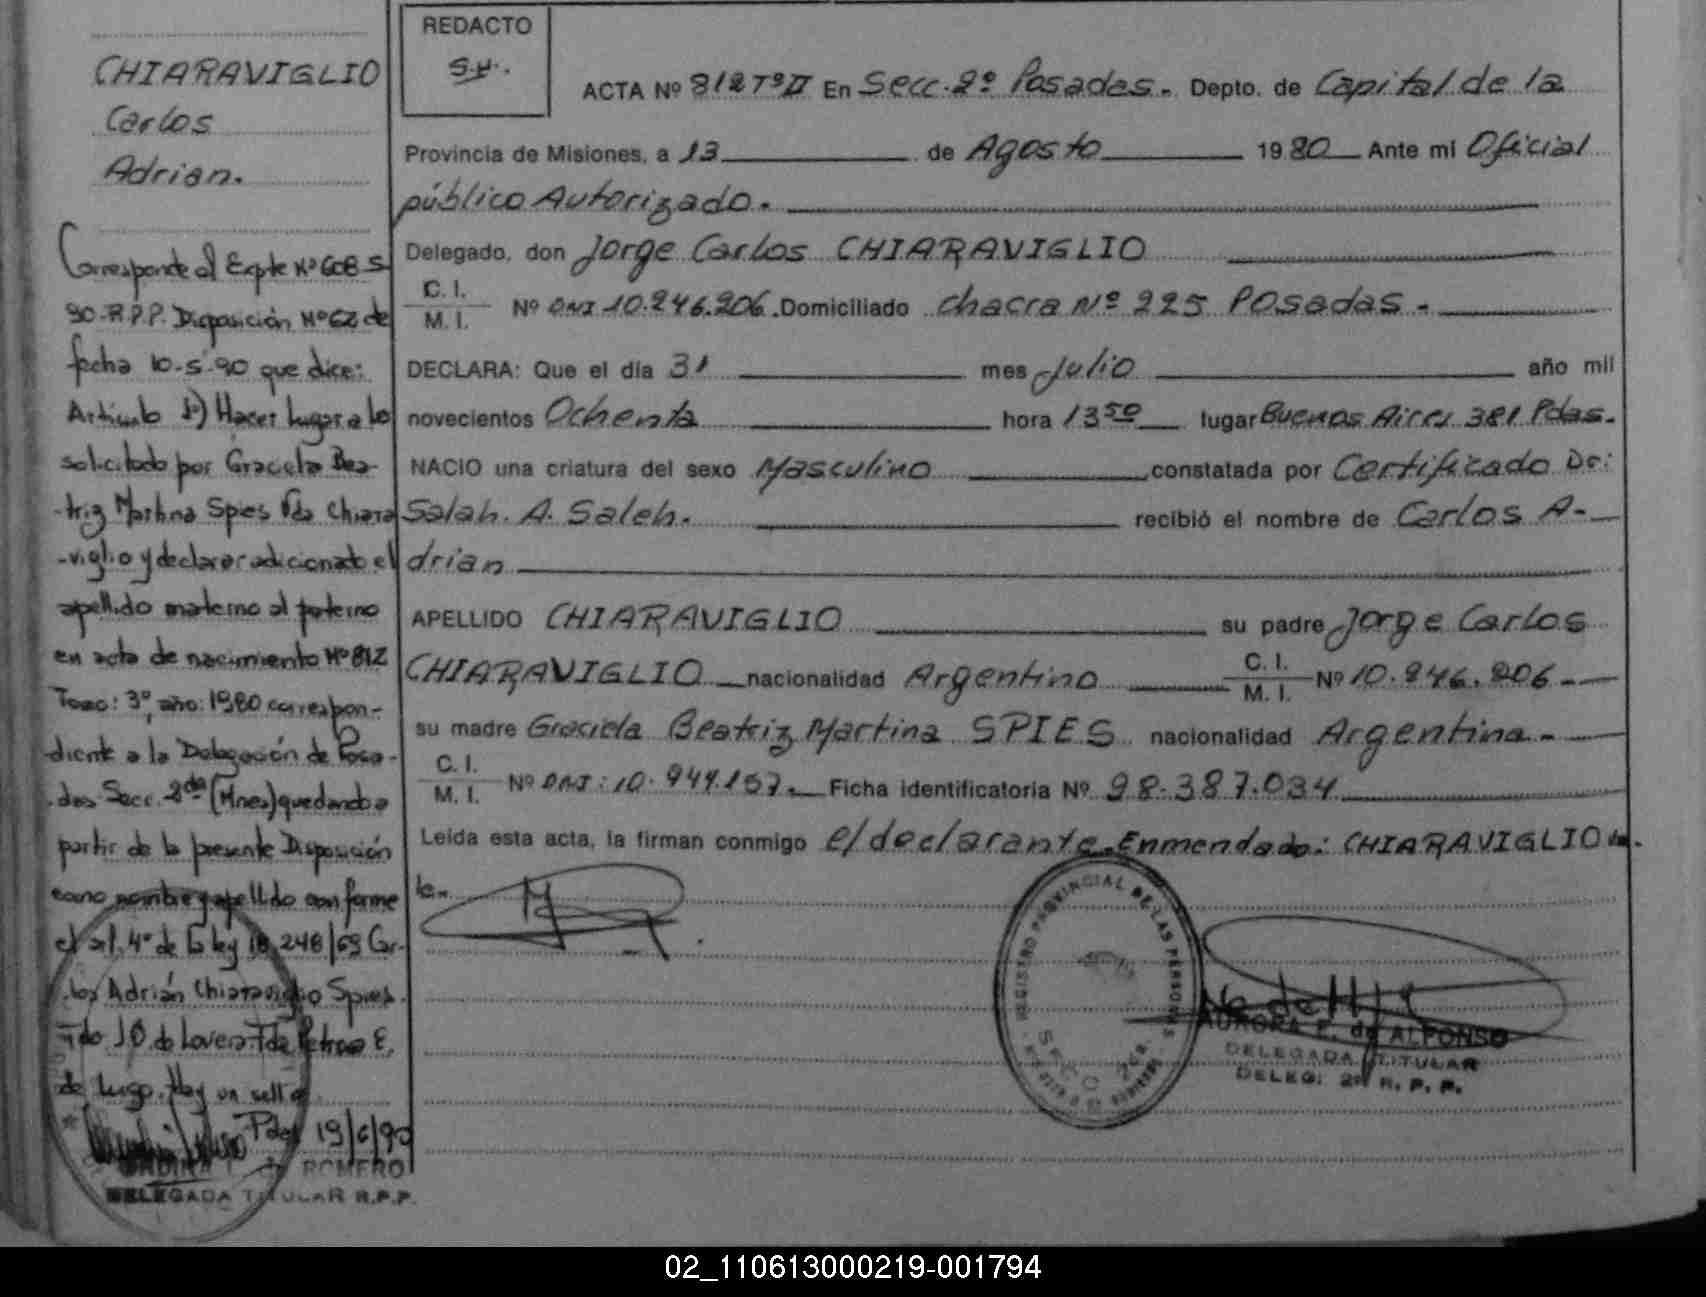 CHIARAVIGLIO
Carlos
Adrian.
Corresponde al Expte Nº 608 S
90-R.P.P. Disposición Nº 62 de
fecha 10-5-90 que dice:
Artículo 1º) Hacer lugar a lo
solicitado por Graciela Bea-
-triz Martina Spies Vda Chiara
-viglio y declarar adicionado el
apellido materno al paterno
en acta de nacimiento Nº 812
Tomo: 3º, año: 1980 correspon-
diente a la Delegación de Posa-
das Secc. 2da (Mnes) quedando a
partir de la presente Disposición
como nombre y apellido conforme
el art. 4º de la ley 18.248/69 Car-
los Adrián Chiaraviglio Spies.
Fdo J.O. de Lovera Fda Petrona E.
de Lugo. Hay un sello
Pdas 19/6/90
ROMERO
DELEGADA TITULAR R.P.P.
REDACTO
S.H.
ACTA Nº 812 TºII En Secc. 2º Posadas. Depto. de Capital de la
Provincia de Misiones, a 13 de Agosto 1980 Ante mi Oficial
público Autorizado.
Delegado, don Jorge Carlos CHIARAVIGLIO
C. I.
M. I.
Nº DNI 10.246.206. Domiciliado chacra Nº 225 Posadas.-
DECLARA: Que el día 31 mes Julio año mil
novecientos Ochenta hora 13 50 lugar Buenos Aires 381 Pdas.
NACIO una criatura del sexo Masculino, constatada por Certificado Dr:
Salah. A. Saleh. recibió el nombre de Carlos A-
drian
APELLIDO CHIARAVIGLIO su padre Jorge Carlos
CHIARAVIGLIO nacionalidad Argentino C. I. M. I. Nº 10.246.206.-
su madre Graciela Beatriz Martina SPIES nacionalidad Argentina.-
C. I.
M. I.
Nº DNI: 10.944.157. Ficha identificatoria Nº 98.387.034
Leída esta acta, la firman conmigo el declarante. Enmendado: CHIARAVIGLIO Va-
le.
REGISTRO PROVINCIAL DE LAS PERSONAS
SECC 2da.
AURORA F. de ALFONSO
DELEGADA TITULAR
DELEG: 2º R. P. P.
02_110613000219-001794